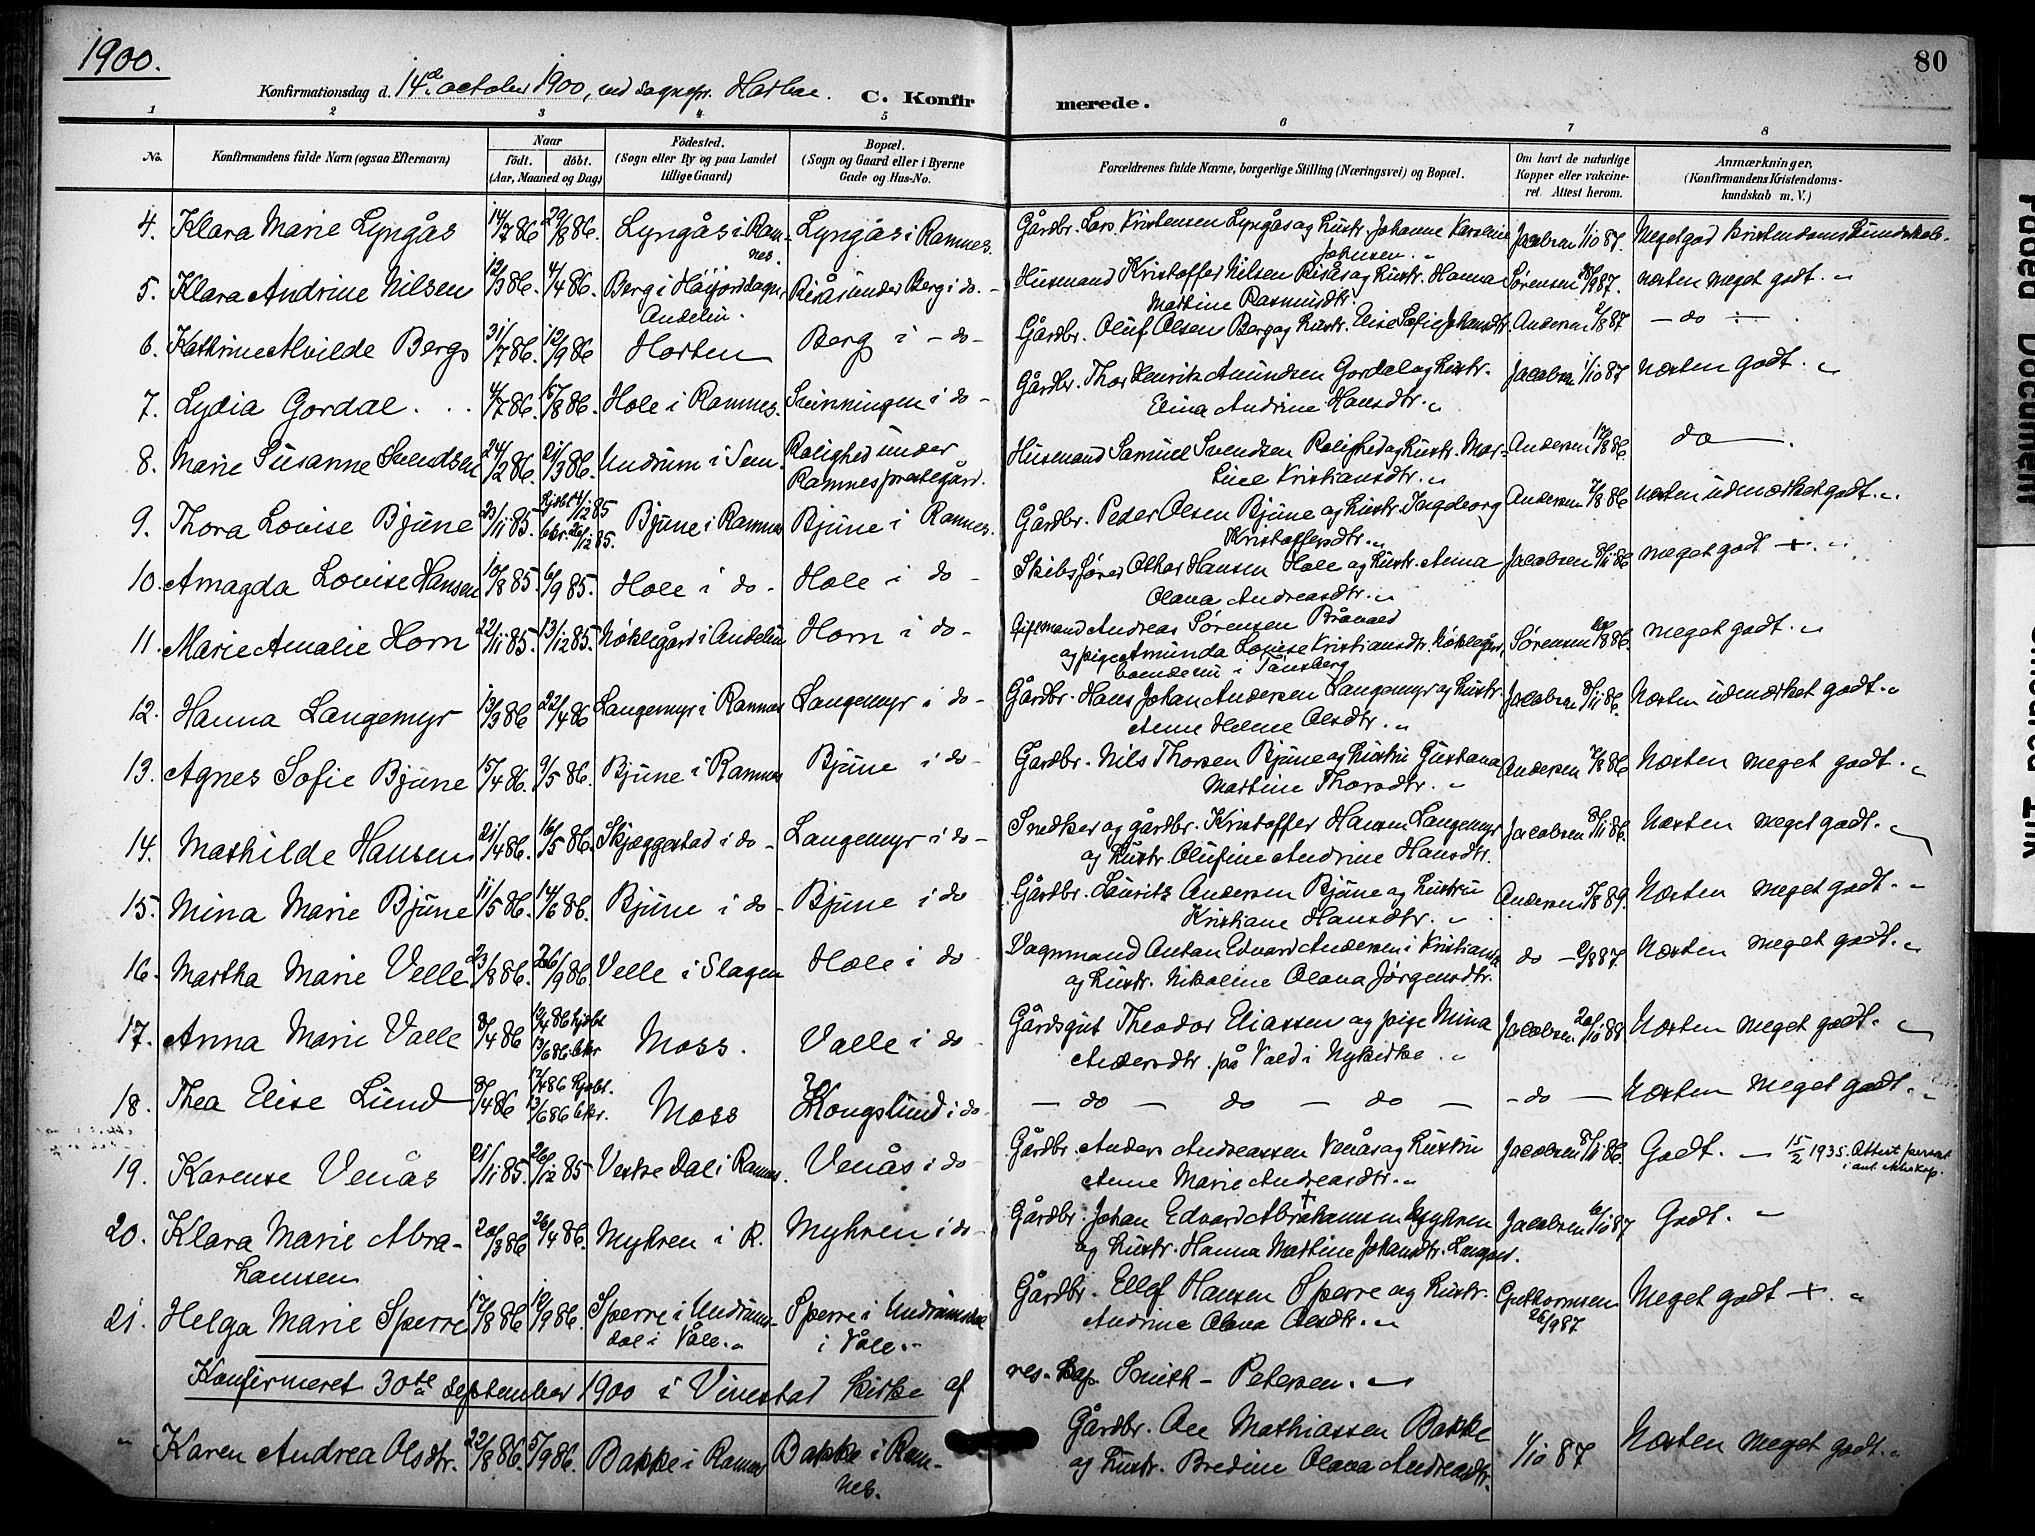 1900.
80
Konfirmationsdag d. 14de october 1900, ved sognepr. C. Konfirmerede.
1 2 3 4 5 6 7 8
No.
Konfirmandens fulde Navn (ogsaa Efternavn)
Naar
født. døbt.
(Aar, Maaned og Dag)
Fødested.
(Sogn eller By og paa Landet
tillige Gaard)
Bopæl.
(Sogn og Gaard eller i Byerne
Gade og Hus-No.
Forældrenes fulde Navne, borgerlige Stilling (Næringsvei) og Bopæl.
Om havt de naturlige
Kopper eller vaccine-
ret. Attest herom.
Anmærkninger,
(Konfirmandens Kristendoms-
kundskab m. V.)
4. Klara Marie Lyngås 14/7 86 29/8 86. Lyngås i Ram- Lyngås i Ramnes. Gårdbr. Lars Kristensen Lyngås og hustr. Johanne Karoline Jacobsen 1/10 87. Meget god Kristendomskundskab.
nes. Johnsen. "
5. Klara Andrine Nilsen 12/3 86. 4/4 86. Berg i Høijord sogn, Risås under Berg i do. Husmand Kristoffer Nilsen Risås og hustr. Hanna Sørensen 87. næsten meget godt. "
Andebu. Martine Rasmusdtr.
6. Kathrine Alvilde Berg 31/7 86. 12/9 86 Horten Berg i - do - Gårdbr. Oluf Olsen Berg og hustr. Elise Sofie Johansdtr. Andersen 2/8 87 - do -
7. Lydia Gordal . . . 4/7 86. 15/8 86. Hole i Ramnes. Svinningen i do - Gårdbr. Thor Henrik Amundsen Gordal og hustr. Jacobsen 1/10 87 næsten godt. "
Elina Andrine Hansdtr. "
8. Marie Susanne Svendsen 24/2 86. 21/3 86. Undrum i Sem. Rolighed under Husmand Samuel Svendsen Rolighed og hustr. Mar- Andersen 86 do.
Ramnes prestegård. tine Kristiansdtr. "
9. Thora Lovise Bjune 23/11 85. hjdbt 4/12 85 Bjune i Ramnes Bjune i Ramnes. Gårdbr. Peder Olsen Bjune og hustr. Ingeborg Andersen 7/8 86 næsten udmærket godt. "
bkr. 26/12 85. Kristoffersdtr. "
10. Amagda Lovise Hansen 10/8 85. 6/9 85. Hole i do - Hole i do - Skibsfører Othar Hansen Hole og hustr. Anna Jacobsen 8/11 86 meget godt +. "
Olava Andreasdtr. "
11. Marie Amalie Horn 22/11 85. 13/12 85. Nøklegård i Andebu Horn i do - Giftmand Andreas Sørensen Bråvald Sørensen 86. meget godt. "
og pige Amunda Lovise Kristiansdtr. Nøklegård,
boende nu i Tønsberg
12. Hanna Langemyr 13/3 86 22/4 86 Langemyr i Ramnes Langemyr i do - Gårdbr. Hans Johan Andersen Langemyr og hustr. Jacobsen 8/11 86. Næsten udmærket godt. "
Anne Helene Olsdtr. "
13. Agnes Sofie Bjune 15/4 86. 9/5 86. Bjune i Ramnes Bjune i do - Gårdbr. Nils Thorsen Bjune og hustru Gustava Andersen 7/8 86 Næsten meget godt. "
Martine Thorsdtr. "
14. Mathilde Hansen 21/4 86. 16/5 86. Skjæggestad i do - Langemyr i do - Snedker og gårdbr. Kristoffer Hansen Langemyr Jacobsen 8/11 86. Næsten meget godt. "
og hustr. Olufine Andrine Hansdtr.
15. Mina Marie Bjune 11/5 86. 14/6 86. Bjune i do - Bjune i do Gårdbr. Lauritz Andersen Bjune og hustru Andersen 5/8 89. Næsten meget godt. "
Kristiane Hansdtr. "
16. Martha Marie Velle 23/8 86. 26/9 86. Velle i Slagen Hole i do Vognmand Anton Edvard Andersen i Kristiania do - 2/8 87. Næsten meget godt. "
og hustr. Nikoline Olava Jørgensdtr.
17. Anna Marie Valle 8/4 86 12/4 86 hjdbt Moss. Valle i do Gårdsgut Theodor Eliassen og pige Mina Jacobsen 20/10 88 Næsten meget godt. "
13/6 86 bkr Andersdtr. på Vold i Nykirke. "
18. Thea Elise Lund 8/4 86 12/4 86 hjdbt. Moss Kongslund i do - do - do - do - - do - Næsten meget godt. "
13/6 86 bkr.
19. Karense Venås 21/11 85. 26/12 85 Vestre Dal i Ramnes. Venås i do Gårdbr. Anders Andreassen Venås og hustru Jacobsen 8/11 86. Godt. - 15/2 1935. Attest
Anne Marie Andreasdtr. "
20. Klara Marie Abra- 20/3 86 26/4 86. Myhren i R. Myhren i do - Gårdbr. Johan Edvard Abrahamsen Myhren Jacobsen 6/10 87 Godt. "
hamsen og hustr. Hanna Martine Johansdtr.
21. Helga Marie Sperre 17/8 86 19/9 86. Sperre i Undrums- Sperre i Undrumsdal Gårdbr. Ellef Hansen Sperre og hustr. Guthormsen Meget godt +. "
dal i Våle. " i Våle. " Andrine Olava Olsdtr. " 26/9 87.
Konfirmeret 30te september 1900 i Vivestad kirke af res. kap. Smith-Petersen. "
" Karen Andrea Olsdtr. 22/8 86. 5/9 86. Bakke i Ramnes Bakke i Ram- Gårdbr. Ole Mathiassen Bakke 1/10 87 Næsten meget godt. "
nes. og hustr. Bredine Olava Andreasdtr.
Faded Document